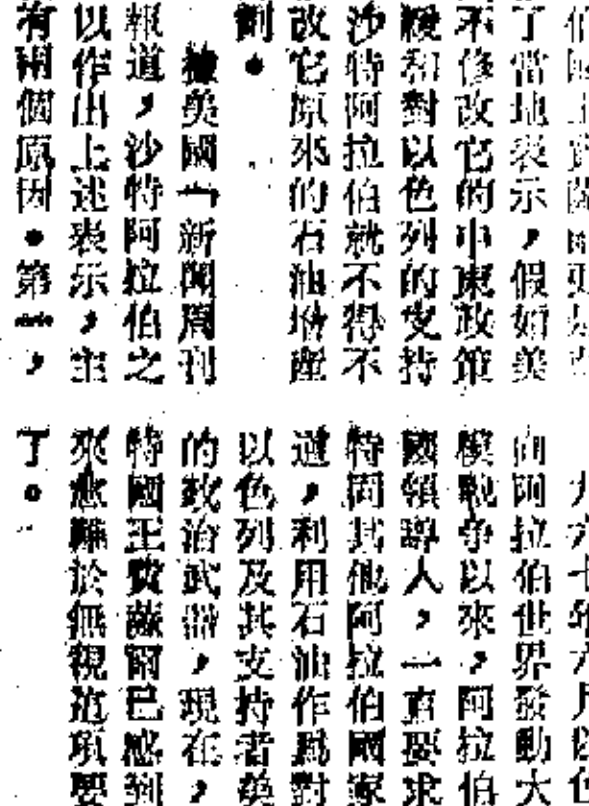 了當地表示,假如美
不修改它的中東政策
緩和對以色列的支持
沙特阿拉伯就不得不
改它原來的石油增產
劃。
據美國「新聞周刊
報道,沙特阿拉伯之
以作出上述表示,主
有兩個原因。第一,
九六七年六月以色
向阿拉伯世界發動大
模戰争以來,阿拉伯
國領導人,一直要求
特同其他阿拉伯國家
道,利用石油作爲對
以色列及其支持者美
的政治武器,現在,
特國王費薩爾已感到
來愈難於無視這項要
了。